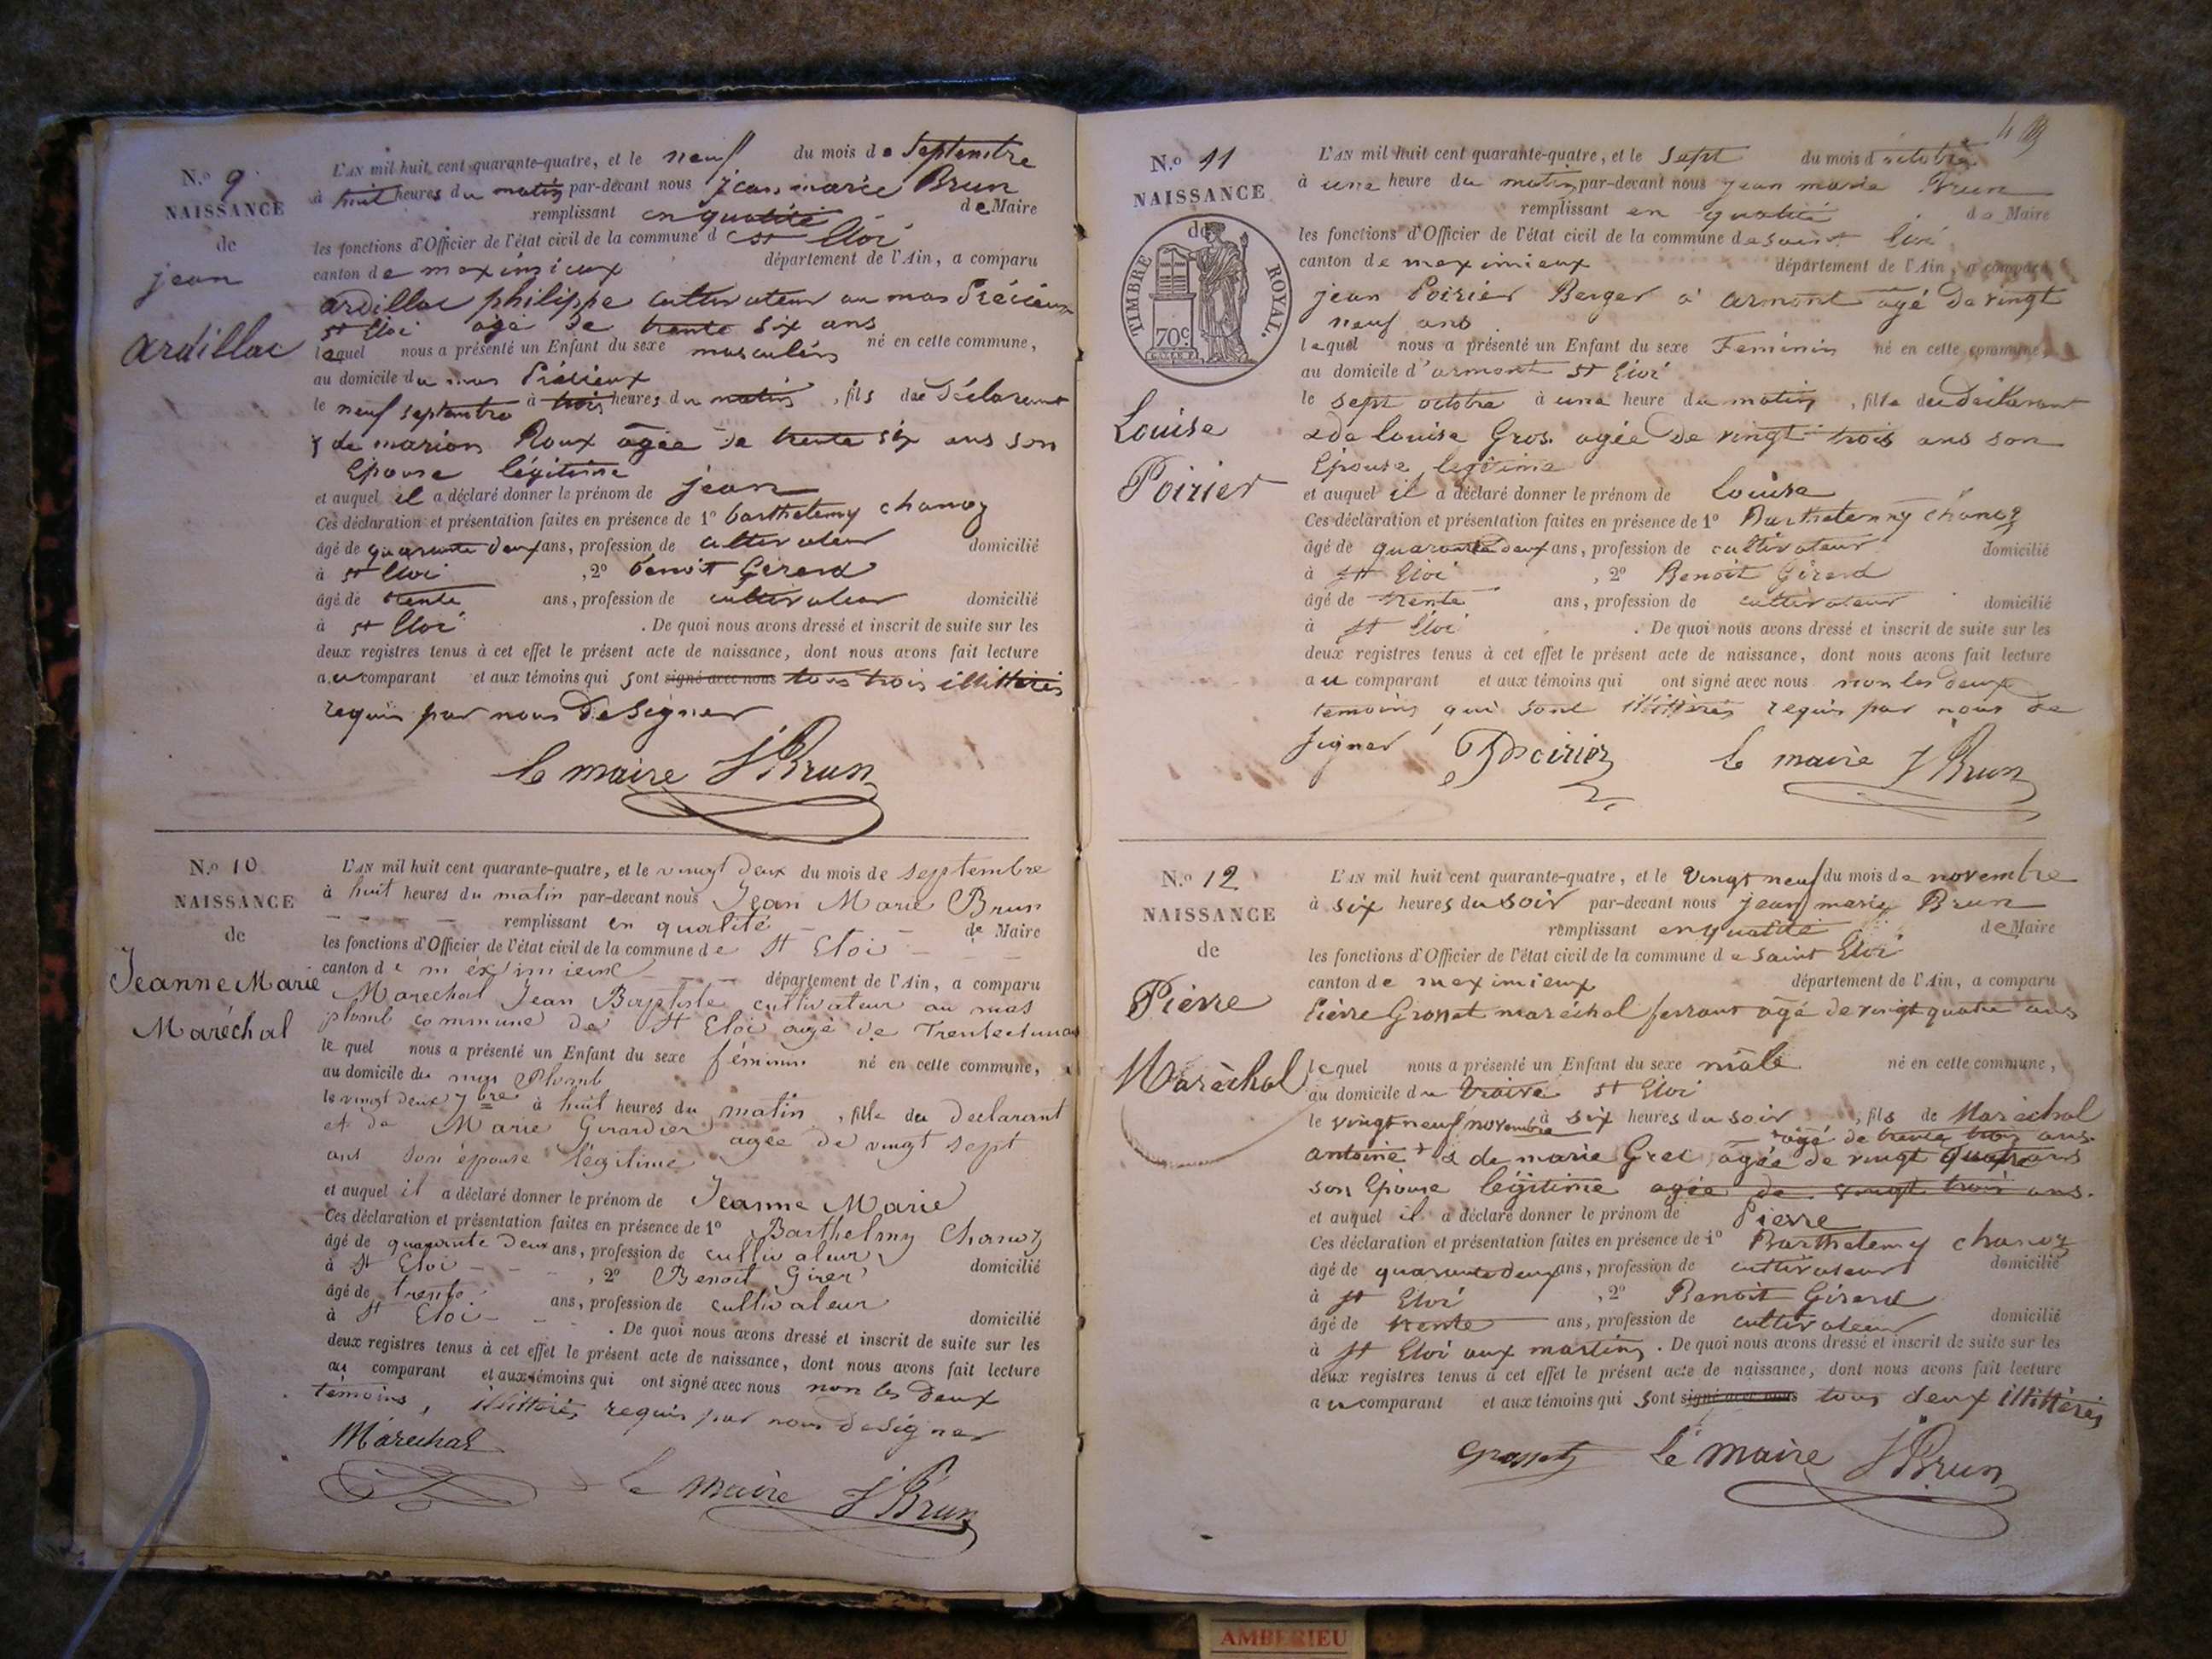 N.o 9
NAISSANCE
de
jean
ardillac
L'AN mil huit cent quarante-quatre, et le neuf du mois de Septembre
à huit heures du matin par-devant nous jean marie Brun
remplissant en qualité de Maire
les fonctions d'Officier de l'état civil de la commune d st Eloi
canton de meximieux département de l'Ain, a comparu
ardillac philippe cultivateur au mas Précieux
st Eloi agé de trente six ans
lequel nous a présenté un Enfant du sexe masculin né en cette commune,
au domicile du mas Précieux
le neuf septembre à trois heures du matin, fils du Déclarant
& de marion Roux agée de trente six ans son
Epouse légitime
et auquel il a déclaré donner le prénom de jean
Ces déclaration et présentation faites en présence de 1o barthelemy chanoz
âgé de quarante deux ans, profession de cultivateur domicilié
à st Eloi , 2o benoit Gererd
âgé de trente ans, profession de cultivateur domicilié
à st Eloi . De quoi nous avons dressé et inscrit de suite sur les
deux registres tenus à cet effet le présent acte de naissance, dont nous avons fait lecture
au comparant et aux témoins qui sont signé avec nous tous trois illitterés
requis par nous de signer
le maire J Brun
N.o 10
NAISSANCE
de
Jeanne Marie
Maréchal
L'AN mil huit cent quarante-quatre, et le vingt deux du mois de septembre
à huit heures du matin par-devant nous Jean Marie Brun
remplissant en qualité de Maire
les fonctions d'Officier de l'état civil de la commune de St Eloi
canton de méximieux département de l'Ain, a comparu
Marechal Jean Baptiste cultivateur au mas
plomb commune de St Eloi agé de Trente et un ans
le quel nous a présenté un Enfant du sexe féminin né en cette commune,
au domicile du mas Plomb
le vingt deux 7bre à huit heures du matin, fille du declarant
et de Marie Girardier agée de vingt sept
ans son épouse légitime
et auquel il a déclaré donner le prénom de Jeanne Marie
Ces déclaration et présentation faites en présence de 1o Barthelmy Chanoz
âgé de quarante deux ans, profession de cultivateur
à St Eloi , 2o Benoit Girer domicilié
âgé de trente ans, profession de cultivateur
à St Eloi domicilié
. De quoi nous avons dressé et inscrit de suite sur les
deux registres tenus à cet effet le présent acte de naissance, dont nous avons fait lecture
au comparant et aux témoins qui ont signé avec nous non les deux
témoins, illitterés requis par nous de signer
Maréchal
le maire J Brun
N.o 11
NAISSANCE
de
TIMBRE ROYAL.
70c
Louise
Poirier
L'AN mil huit cent quarante-quatre, et le sept du mois d'octobre
à une heure du matin par-devant nous jean marie Brun
remplissant en qualité de Maire
les fonctions d'Officier de l'état civil de la commune de saint Eloi
canton de meximieux département de l'Ain, a comparu
jean Poirier Berger à armont agé de vingt
neuf ans
lequel nous a présenté un Enfant du sexe Feminin né en cette commune,
au domicile d'armont st Eloi
le sept octobre à une heure du matin, fille du declarant
& de louise Gros agée de vingt trois ans son
Epouse legitime
et auquel il a déclaré donner le prénom de Louise
Ces déclaration et présentation faites en présence de 1o Barthelemy chanoz
âgé de quarante deux ans, profession de cultivateur domicilié
à st Eloi , 2o Benoit Girerd
âgé de trente ans, profession de cultivateur domicilié
à st Eloi . De quoi nous avons dressé et inscrit de suite sur les
deux registres tenus à cet effet le présent acte de naissance, dont nous avons fait lecture
au comparant et aux témoins qui ont signé avec nous non les deux
temoins qui sont illitterés requis par nous de
signer Poirier le maire J Brun
N.o 12
NAISSANCE
de
Pièrre
Maréchal
L'AN mil huit cent quarante-quatre, et le vingt neuf du mois de novembre
à six heures du soir par-devant nous jean marie Brun
remplissant en qualité de Maire
les fonctions d'Officier de l'état civil de la commune de saint Eloi
canton de meximieux département de l'Ain, a comparu
Pièrre Grosset maréchal ferrant agé de vingt quatre ans
lequel nous a présenté un Enfant du sexe mâle né en cette commune,
au domicile du st Eloi
le vingt neuf novembre à six heures du soir, fils de Maréchal
+agé de trente trois ans.
antoine + & de marie Grec agée de vingt quatre ans
son Epouse légitime agée de vingt trois ans.
et auquel il a déclaré donner le prénom de Pierre
Ces déclaration et présentation faites en présence de 1o Barthelemy chanoz
âgé de quarante deux ans, profession de cultivateur domicilié
à st Eloi , 2o Benoit Girerd
âgé de trente ans, profession de cultivateur domicilié
à st Eloi aux martins . De quoi nous avons dressé et inscrit de suite sur les
deux registres tenus à cet effet le présent acte de naissance, dont nous avons fait lecture
au comparant et aux témoins qui sont signé avec nous tous deux illittérés
Grosset le maire J Brun
AMBERIEU